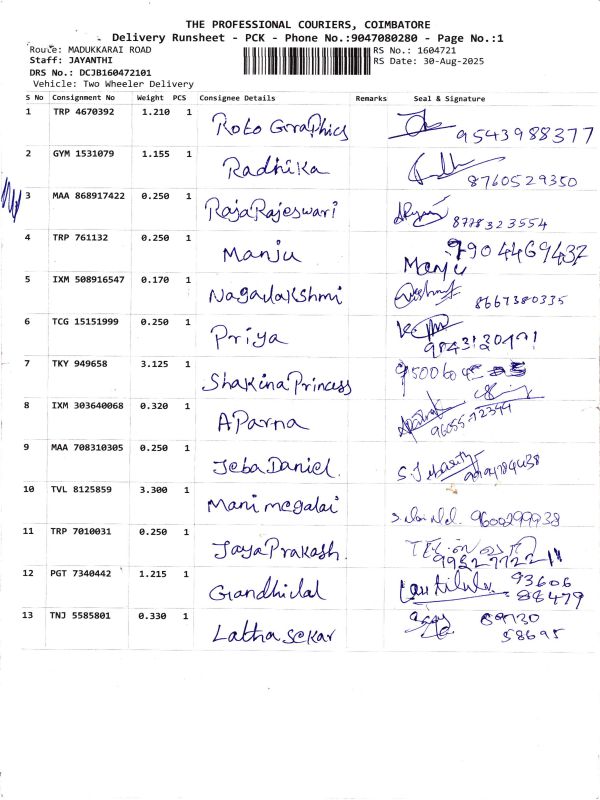 THE PROFESSIONAL COURIERS, COIMBATORE
Delivery Runsheet - PCK - Phone No.:9047080280 - Page No.:1
Route: MADUKKARAI ROAD RS No.: 1604721
Staff: JAYANTHI RS Date: 30-Aug-2025
DRS No.: DCJB160472101
Vehicle: Two Wheeler Delivery
S No Consignment No Weight PCS Consignee Details Remarks Seal & Signature
1 TRP 4670392 1.210 1 Roto Graphics 9543988377
2 GYM 1531079 1.155 1 Radhika 8760529350
3 MAA 868917422 0.250 1 RajaRajeswari 8778323554
4 TRP 761132 0.250 1 Manju 7904469437
Manju
5 IXM 508916547 0.170 1 Nagalakshmi 8667380335
6 TCG 15151999 0.250 1 Priya
7 TKY 949658 3.125 1 Shakina Princess
8 IXM 303640068 0.320 1 AParna
9 MAA 708310305 0.250 1 Jeba Daniel.
10 TVL 8125859 3.300 1 Mani megalai 9600299938
11 TRP 7010031 0.250 1 Jaya Prakash.
12 PGT 7340442 1.215 1 Gandhilal 93606
88479
13 TNJ 5585801 0.330 1 Latha sekar
58695